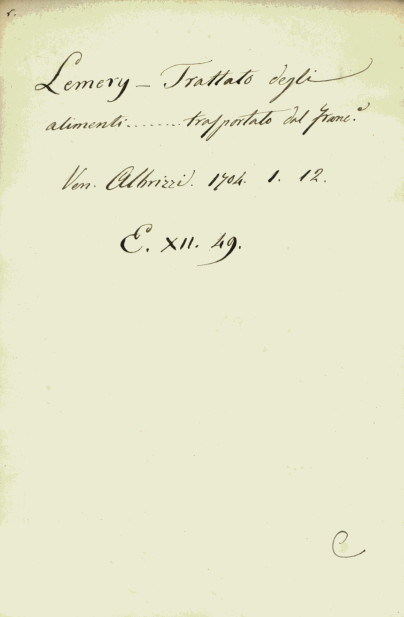 Lemery — Trattato degli
alimenti........trasportato dal franc.e
Ven. Albrizzi. 1704. 1. 12.
E. XII. 49.
C